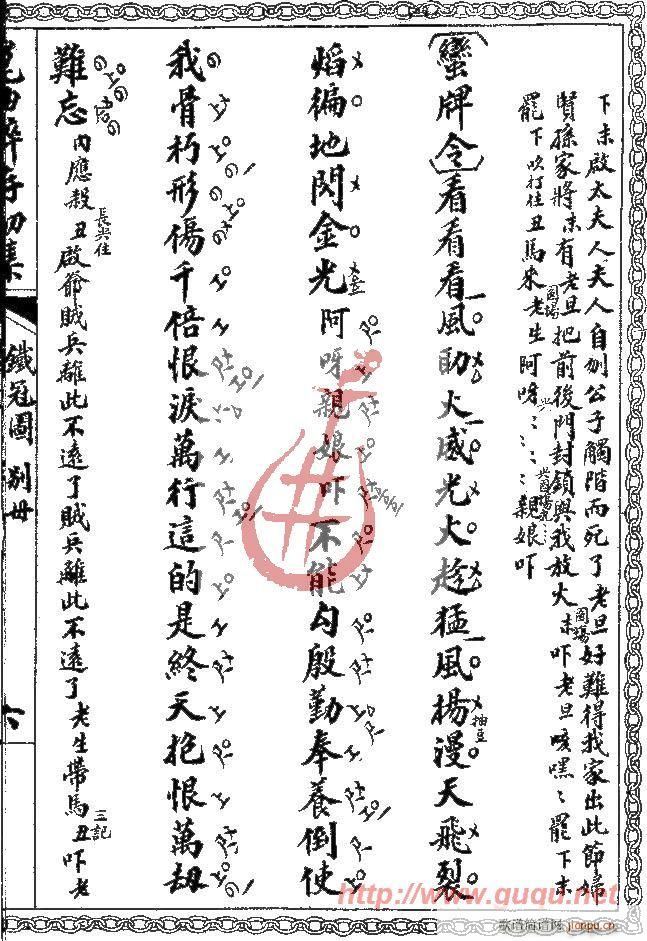 下末啟太夫人夫人自刎公子觸階而死了老旦好難得我家出此節婦
賢孫家將末有老旦把前後門封鎖與我放火末吓老旦咳嘿〻罷下末
罷下吹打住丑馬來老生阿呀〻〻〻親娘吓
〔蠻牌令〕看看看風助火威光火趁猛風揚漫天飛裂
焰徧地閃金光阿呀親娘吓不能勾殷勤奉養倒使
我骨朽形傷千倍恨淚萬行這的是終天抱恨萬劫
難忘內應殺丑啟爺賊兵離此不遠了賊兵離此不遠了老生帶馬丑吓老
鐵冠圖 別母
六
http://www.ququ.net
歌谱简谱网 jianpu.cn